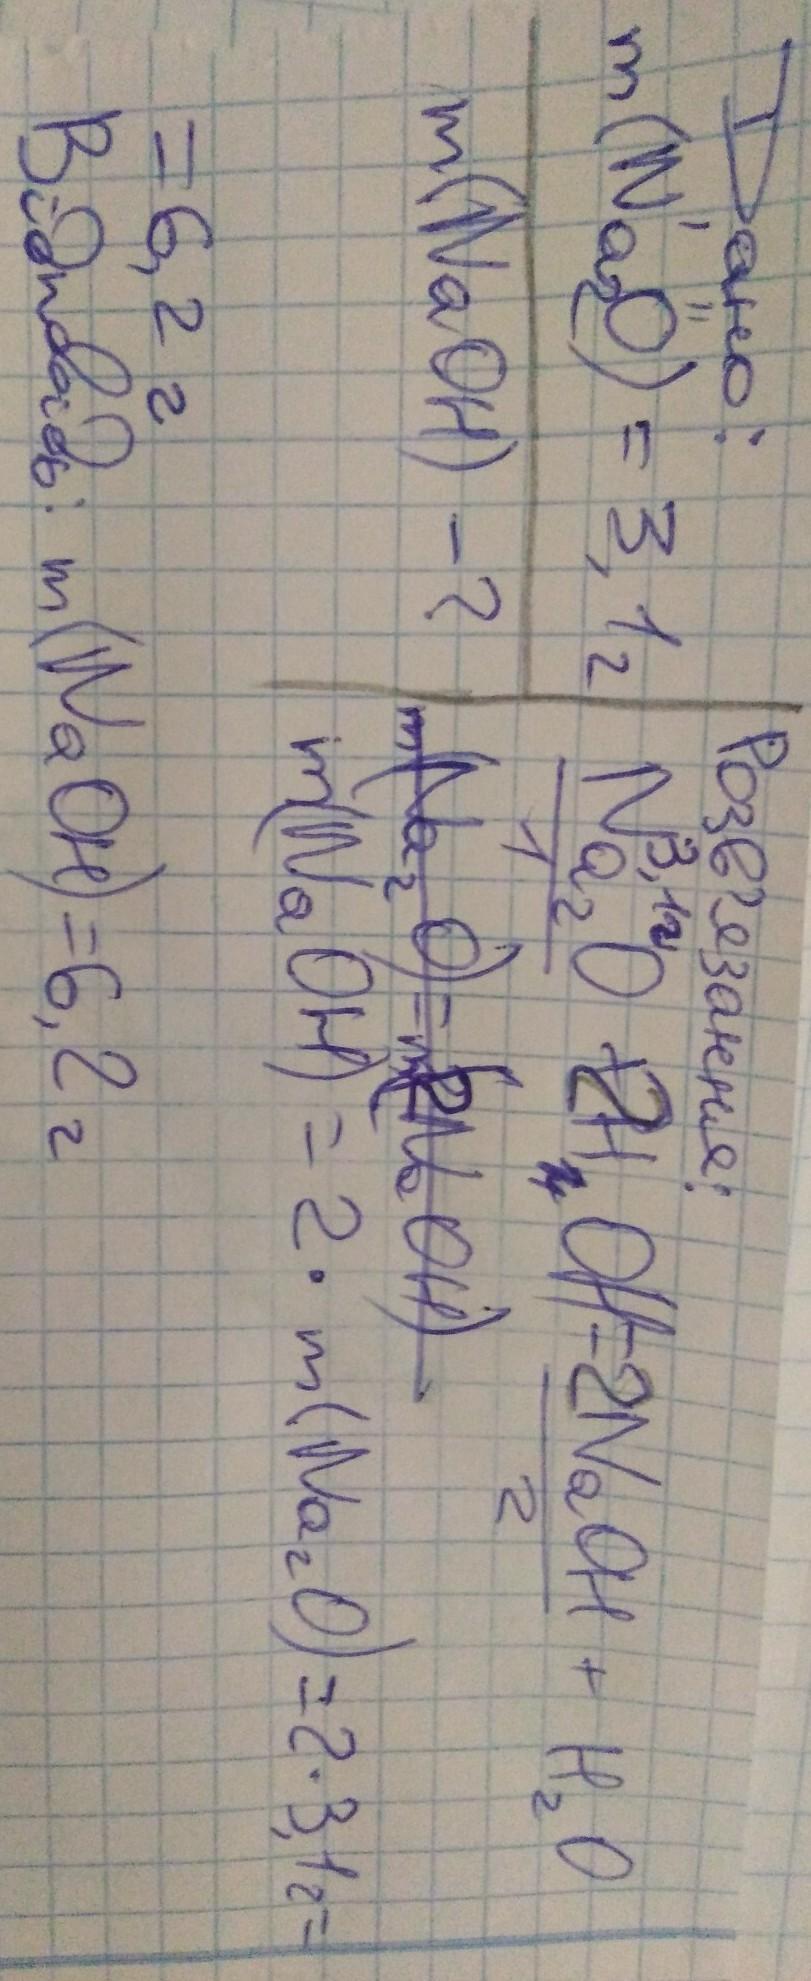 Дано:
m(Na₂O) = 3,1г
m(NaOH) - ?
Розв'язання:
3,1г
Na₂O + 2H₂OH = 2NaOH + H₂O
1 2
m(Na₂O) = m(2NaOH)
m(NaOH) = 2 · m(Na₂O) = 2 · 3,1г =
= 6,2 г
Відповідь: m(NaOH) = 6,2 г